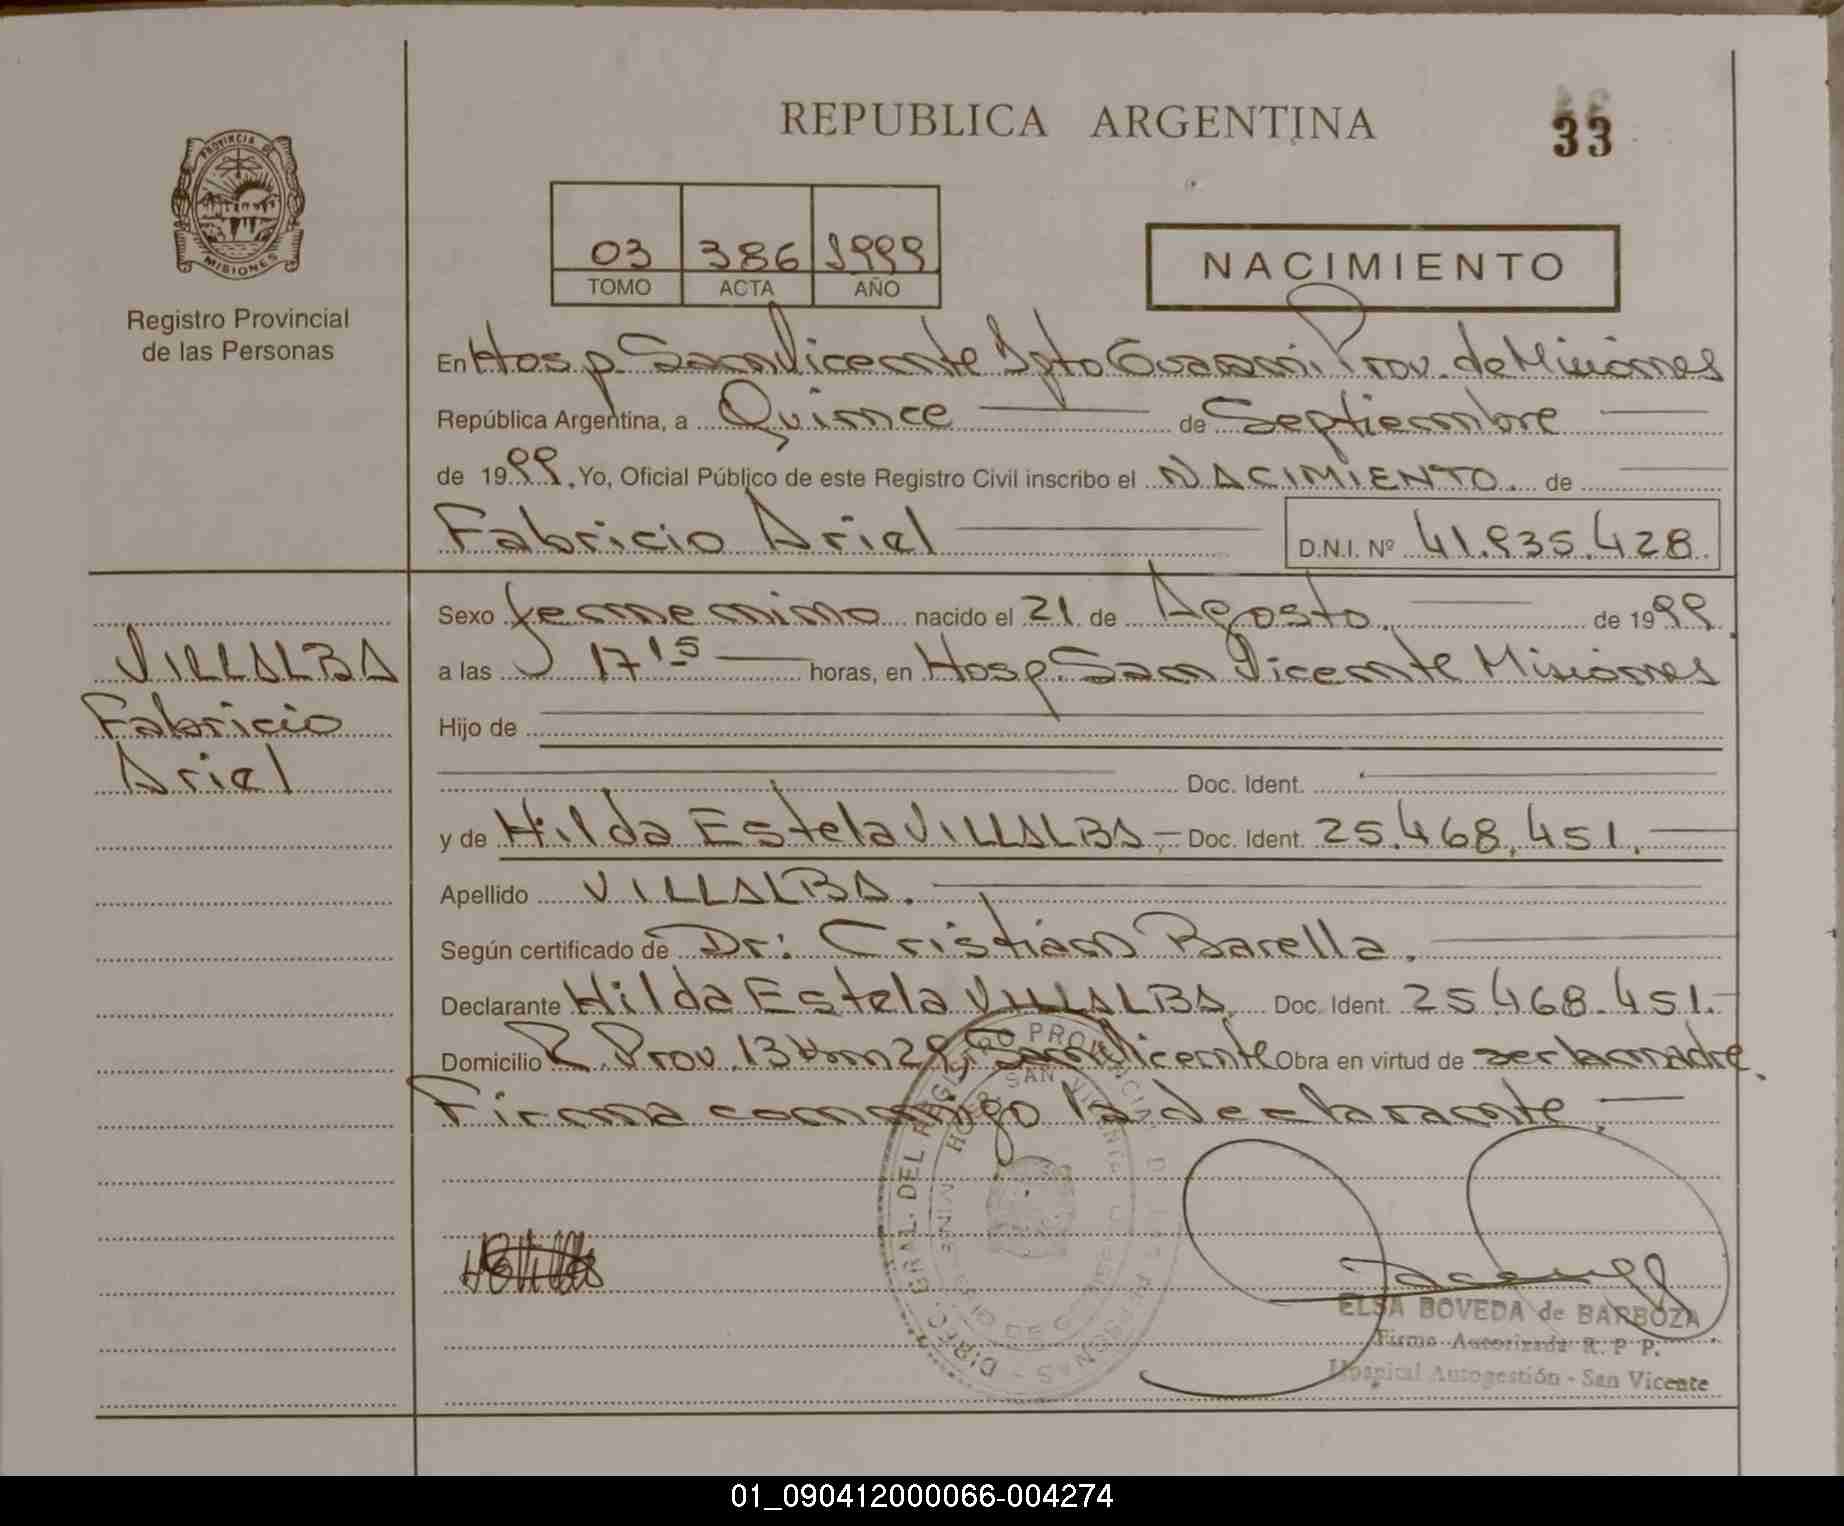 REPUBLICA ARGENTINA
33
PROVINCIA DE
MISIONES
Registro Provincial
de las Personas
03 386 1999
TOMO ACTA AÑO
NACIMIENTO
En Hosp. San Vicente Dpto Guarani Prov. de Misiones
República Argentina, a Quince de Septiembre
de 1999. Yo, Oficial Público de este Registro Civil inscribo el NACIMIENTO. de
Fabricio Ariel D.N.I. Nº 41.835.428
Sexo femenino nacido el 21 de Agosto de 1999.
a las 17 15 horas, en Hosp. San Vicente Misiones
Hijo de
Doc. Ident.
y de Hilda Estela VILLALBA, Doc. Ident. 25.468.451.
Apellido VILLALBA.
Según certificado de Dr: Cristian Barella.
Declarante Hilda Estela VILLALBA. Doc. Ident. 25.468.451.-
Domicilio R. Prov. 13 Km 29, San Vicente Obra en virtud de ser la madre.
Firma conmigo la declarante.
VILLALBA
Fabricio
Ariel
DIREC. GRAL. DEL REGISTRO PROVINCIAL DE LAS PERSONAS -
HOSP. SAN VICENTE
MISIONES
ELSA BOVEDA de BARBOZA
Firma Autorizada R. P P.
Hospital Autogestión - San Vicente
01_090412000066-004274